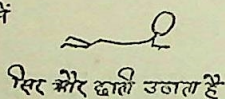 में
सिर और छाती उठाता है